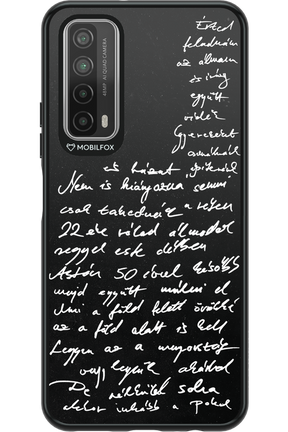 48MP AI QUAD CAMERA
MOBILFOX
Érted
feladnám
az álmaim
és így
együtt
Gyereket
csinálnék
és házat építenék
Nem is hiányozna semmi
csak takaródnék a
22 éve rólad álmodok
reggel este délben
Aztán 50 évvel később
majd együtt múlni el
a föld felett örökké
az a föld alatt is kell
Legyen az a mennyország
vagy legyünk akárhol
De nélküled soha
akkor inkább a Pokol